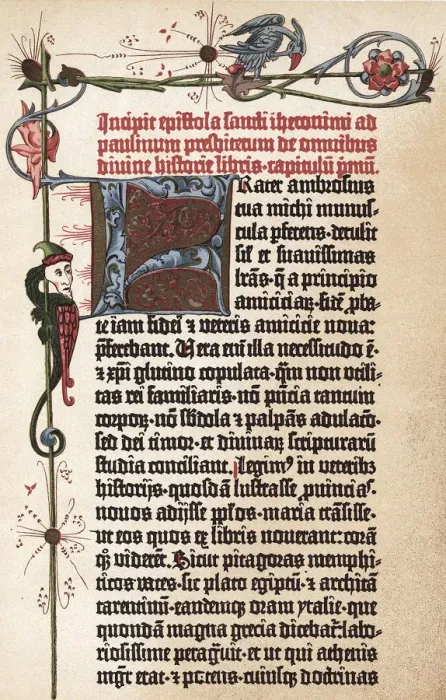 Incipit epistola sancti iheronimi ad
paulinum presbiterum de omnibus
divine historie libris·capitulū pmū.
FRater ambrosius
tua michi munus-
cula ꝑferens·detulit
sił et suavissimas
lrās·q̄ a principio
amiciciaꝝ·fidē ꝓba-
te iam fidei ⁊ veteris amicicie nova:
ꝑferebant. Vera em̄ illa necessitudo ē·
⁊ xp̄i glutino copulata·qm̄ non utili-
tas rei familiaris·nō pn̄cia tantum
corpoꝝ·nō sb̄dola ⁊ palpās adulacō·
sed dei timor·et divinaꝝ scripturarū
studia conciliant. Legim⁹ in veteribꝫ
historijs·quosdā lustrasse ꝓvincias·
novos adijsse pp̄los·maria trāsisse·
ut eos quos ex libris noverant: corā
qꝫ viderēt. Sicut pitagoras memphi-
ticos vates·sic plato egiptū·⁊ architā
tarentinū·eandemqꝫ oram ytalie·que
quondā magna grecia dicebat̄: labo-
riosissime peragravit·et ut qui athenis
mgr̄ erat·⁊ potens·cuiusqꝫ doctrinas